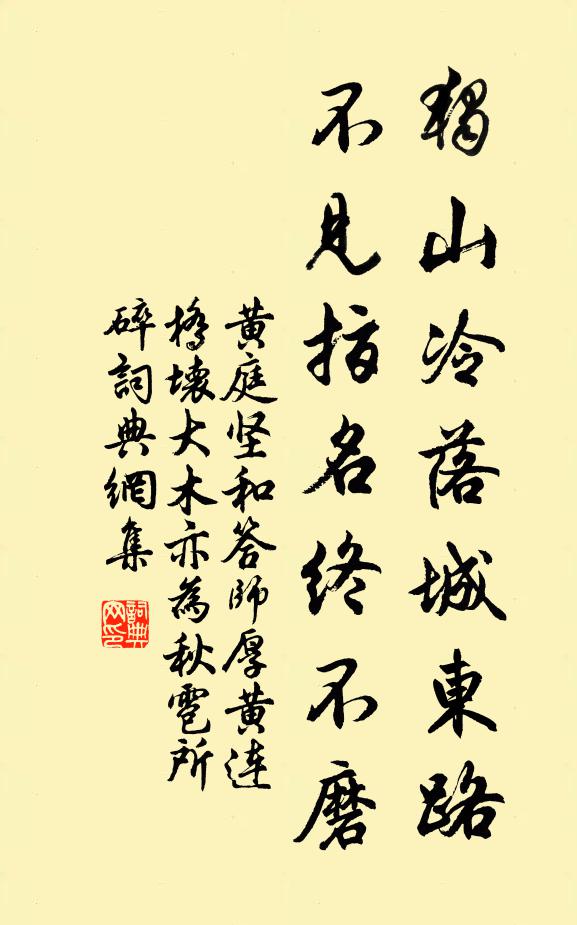 獨山冷落城東路
不見指名終不磨
黄庭坚和答師厚黄連
橋壞大木亦為秋雹所
碎詞典網集
詞典网印